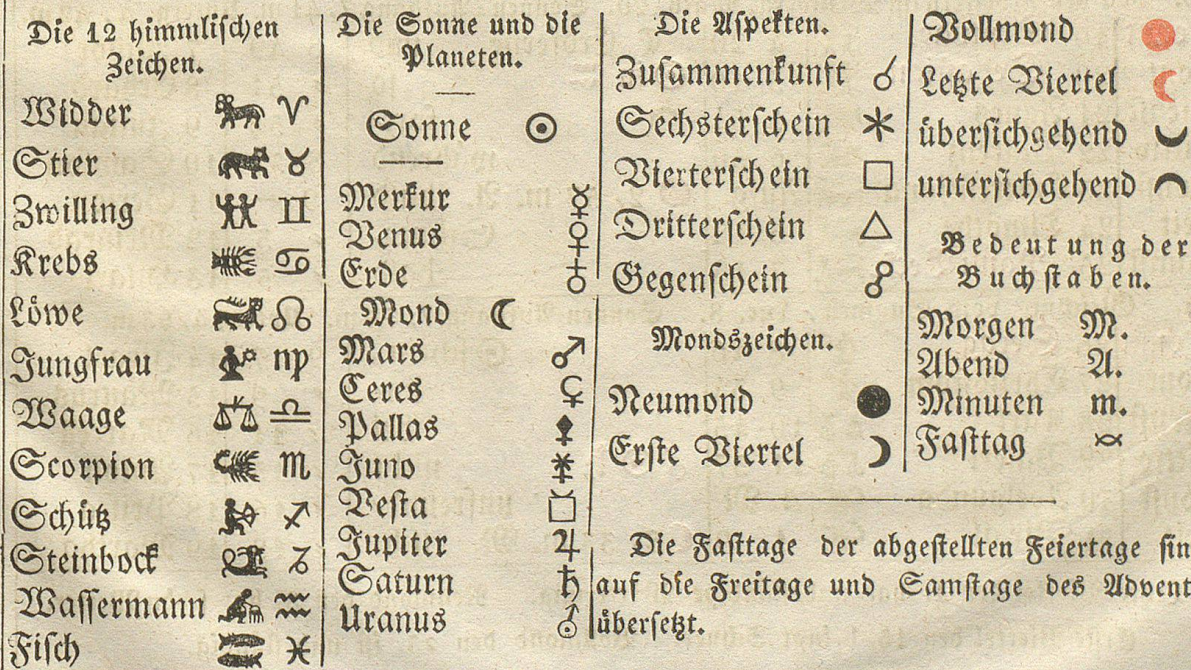 Die 12 himmlischen
Zeichen.
Widder ♈
Stier ♉
Zwilling ♊
Krebs ♋
Löwe ♌
Jungfrau ♍
Waage ♎
Scorpion ♏
Schütz ♐
Steinbock ♑
Wassermann ♒
Fisch ♓
Die Sonne und die
Planeten.
Sonne ☉
Merkur ☿
Venus ♀
Erde ♁
Mond ☾
Mars ♂
Ceres ⚳
Pallas ⚴
Juno ⚵
Vesta ⚶
Jupiter ♃
Saturn ♄
Uranus ⛢
Die Aspekten.
Zusammenkunft ☌
Sechsterschein ⚹
Vierterschein □
Dritterschein △
Gegenschein ☍
Mondszeichen.
Neumond ●
Erste Viertel ☽
Vollmond ●
Letzte Viertel ☾
übersichgehend
untersichgehend
Bedeutung der
Buchstaben.
Morgen M.
Abend A.
Minuten m.
Fasttag
Die Fasttage der abgestellten Feiertage sin
auf die Freitage und Samstage des Advent
übersetzt.